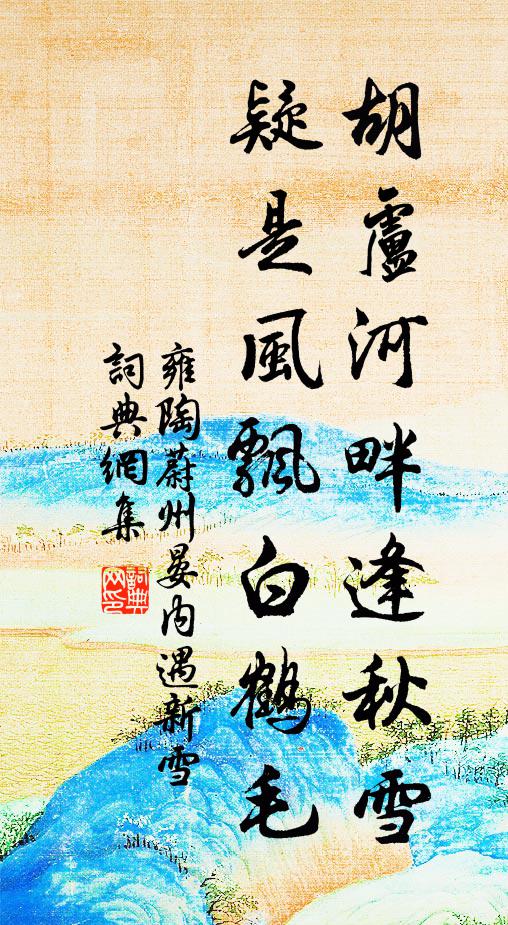 胡盧河畔逢秋雪
疑是風飄白鶴毛
雍陶蔚州晏内遇新雪
詞典網集
詞典網印